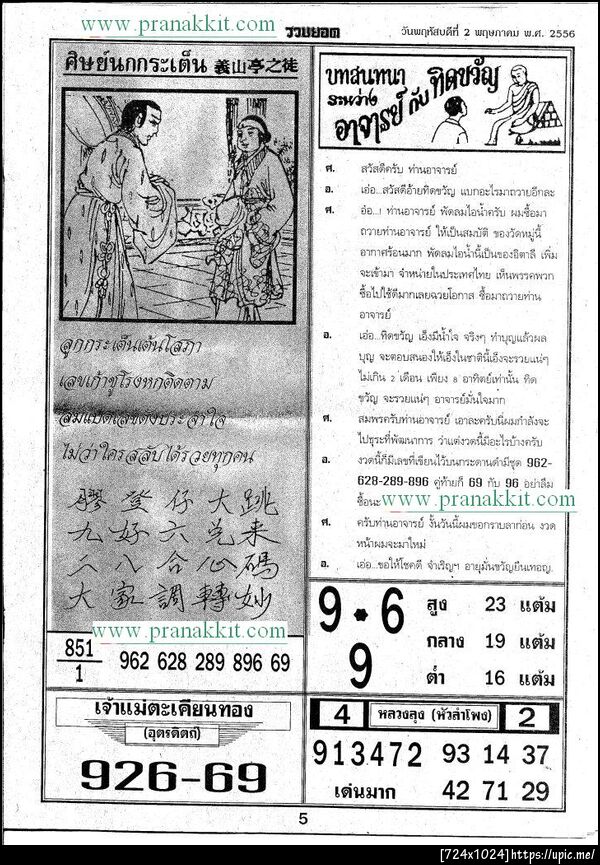 www.pranakkit.com
รวมยอด
วันพฤหัสบดีที่ 2 พฤษภาคม พ.ศ. 2556
ศิษย์นกกระเต็น 義山亭之徒
ลูกกระเต็นเต้นโสภา
เลขเก้าชูโรงหกติดตาม
ไม่ว่าใครสลับได้รวยทุกคน
膠登仔大跳
九好六兑来
二八合心碼
大家調轉妙
www.pranakkit.com
851
1
962 628 289 896 69
เจ้าแม่ตะเคียนทอง
(อุตรดิตถ์)
926-69
บทสนทนา
ระหว่าง
อาจารย์ กับ ทิดขวัญ
ศ. สวัสดีครับ ท่านอาจารย์
อ. เอ่อ...สวัสดีอ้ายทิดขวัญ แบกอะไรมาถวายอีกละ
ศ. อ๋อ...! ท่านอาจารย์ พัดลมไอน้ำครับ ผมซื้อมา
ถวายท่านอาจารย์ ให้เป็นสมบัติ ของวัดหมู่นี้
อากาศร้อนมาก พัดลมไอน้ำนี้เป็นของอิตาลี เพิ่ม
จะเข้ามา จำหน่ายในประเทศไทย เห็นพรรคพวก
ซื้อไปใช้ดีมากเลยฉวยโอกาส ซื้อมาถวายท่าน
อาจารย์
อ. เอ่อ...ทิดขวัญ เอ็งมีน้ำใจ จริงๆ ทำบุญแล้วผล
บุญ จะตอบสนองให้เอ็งในชาตินี้เอ็งจะรวยแน่ๆ
ไม่เกิน 2 เดือน เพียง 8 อาทิตย์เท่านั้น ทิด
ขวัญ จะรวยแน่ๆ อาจารย์มั่นใจมาก
ศ. สมพรครับท่านอาจารย์ เอาละครับนี่ผมกำลังจะ
ไปธุระที่พัฒนาการ ว่าแต่งวดนี้มีอะไรบ้างครับ
อ. งวดนี้ก็มีเลขที่เขียนไว้บนกระดานดำมีชุด 962-
628-289-896 คู่ท้ายก็ 69 กับ 96 อย่าลืม
ซื้อนะ www.pranakkit.com
ศ. ครับท่านอาจารย์ งั้นวันนี้ผมขอกราบลาก่อน งวด
หน้าผมจะมาใหม่
อ. เอ่อ...ขอให้โชคดี จำเริญๆ อายุมั่นขวัญยืนเทอญ.
9*6
9
สูง 23 แต้ม
กลาง 19 แต้ม
ต่ำ 16 แต้ม
4 หลวงลุง (หัวลำโพง) 2
913472 93 14 37
เด่นมาก 42 71 29
5
[724x1024]https://upic.me/